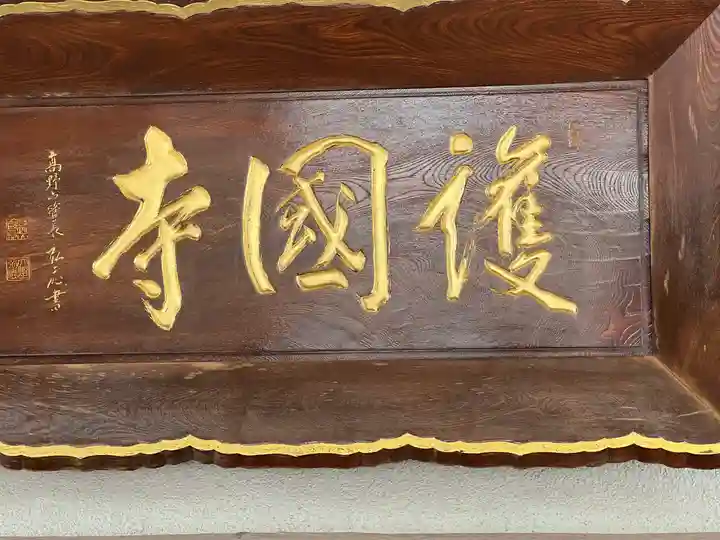 護國寺
高野山管長弘元書